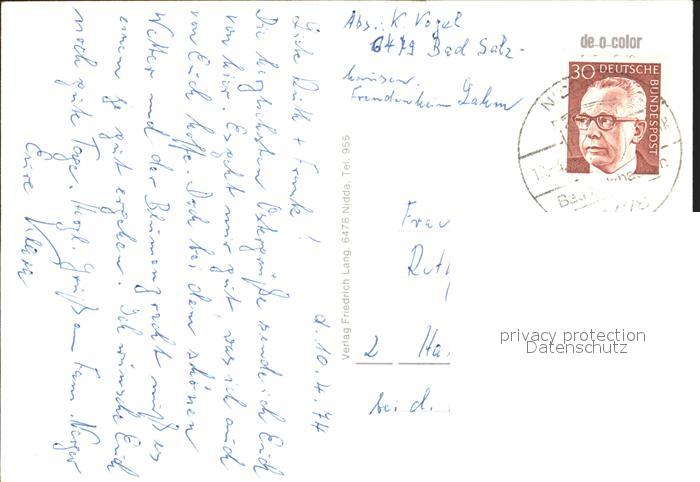 d. 10.4.74
Liebe Ruth + Frank!
Die herzlichsten Ostergrüße sende ich Euch
von hier. Es geht mir gut, was ich auch
von Euch hoffe. Doch bei dem schönen
Wetter und der Blumenpracht muß es
einem ja gut ergehen. Ich wünsche Euch
noch gute Tage. Herzl. Grüße an Fam.
Eure
Abs.: K. Vogel
6479 Bad Salz-
hausen.
Fremdenheim
Verlag Friedrich Lang, 6478 Nidda, Tel. 955
de-o-color
30 DEUTSCHE
BUNDESPOST
Frau
Ruth
2 Ha
bei d.
privacy protection
Datenschutz